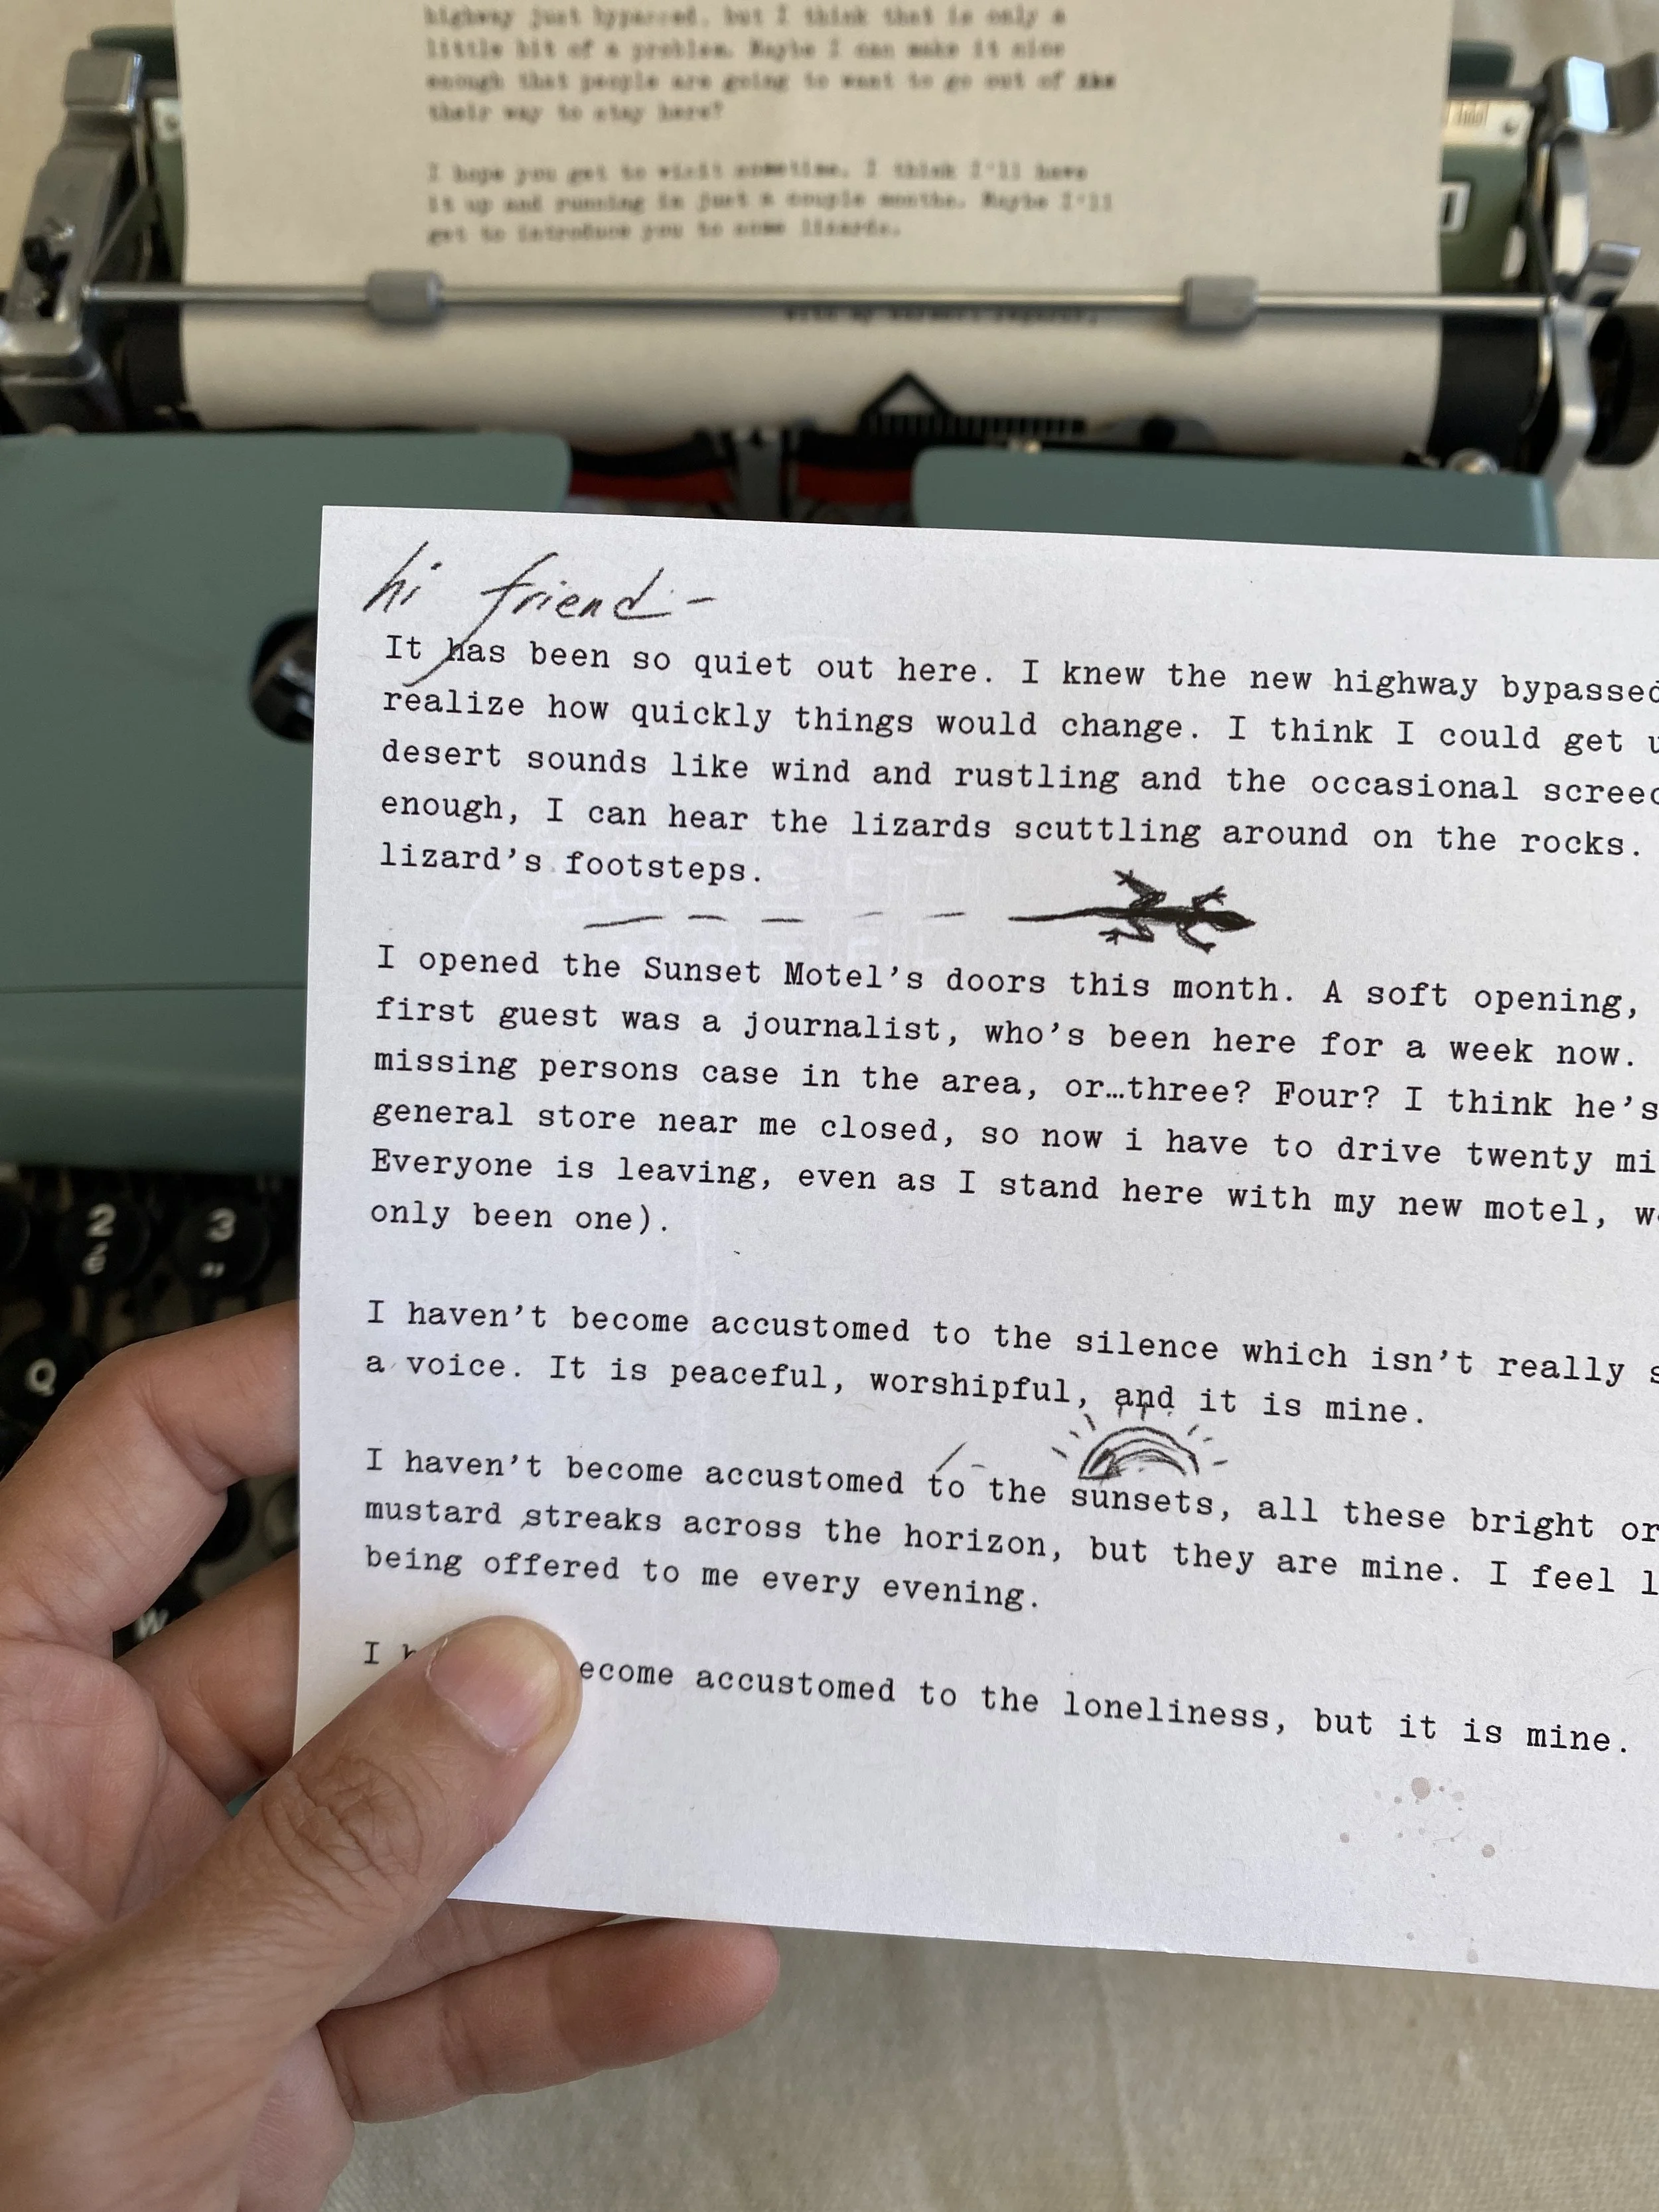 highway just bypassed, but I think that is only a
little bit of a problem. Maybe I can make it nice
enough that people are going to want to go out of
their way to stay here?
I hope you get to visit sometime. I think I'll have
it up and running in just a couple months. Maybe I'll
get to introduce you to some lizards.
with my warmest regards,
hi friend-
It has been so quiet out here. I knew the new highway bypassed
realize how quickly things would change. I think I could get u
desert sounds like wind and rustling and the occasional screec
enough, I can hear the lizards scuttling around on the rocks.
lizard's footsteps.
I opened the Sunset Motel's doors this month. A soft opening,
first guest was a journalist, who's been here for a week now.
missing persons case in the area, or…three? Four? I think he's
general store near me closed, so now i have to drive twenty mi
Everyone is leaving, even as I stand here with my new motel, w
only been one).
I haven't become accustomed to the silence which isn't really s
a voice. It is peaceful, worshipful, and it is mine.
I haven't become accustomed to the sunsets, all these bright or
mustard streaks across the horizon, but they are mine. I feel l
being offered to me every evening.
I h ecome accustomed to the loneliness, but it is mine.
2 3
é "
Q
W